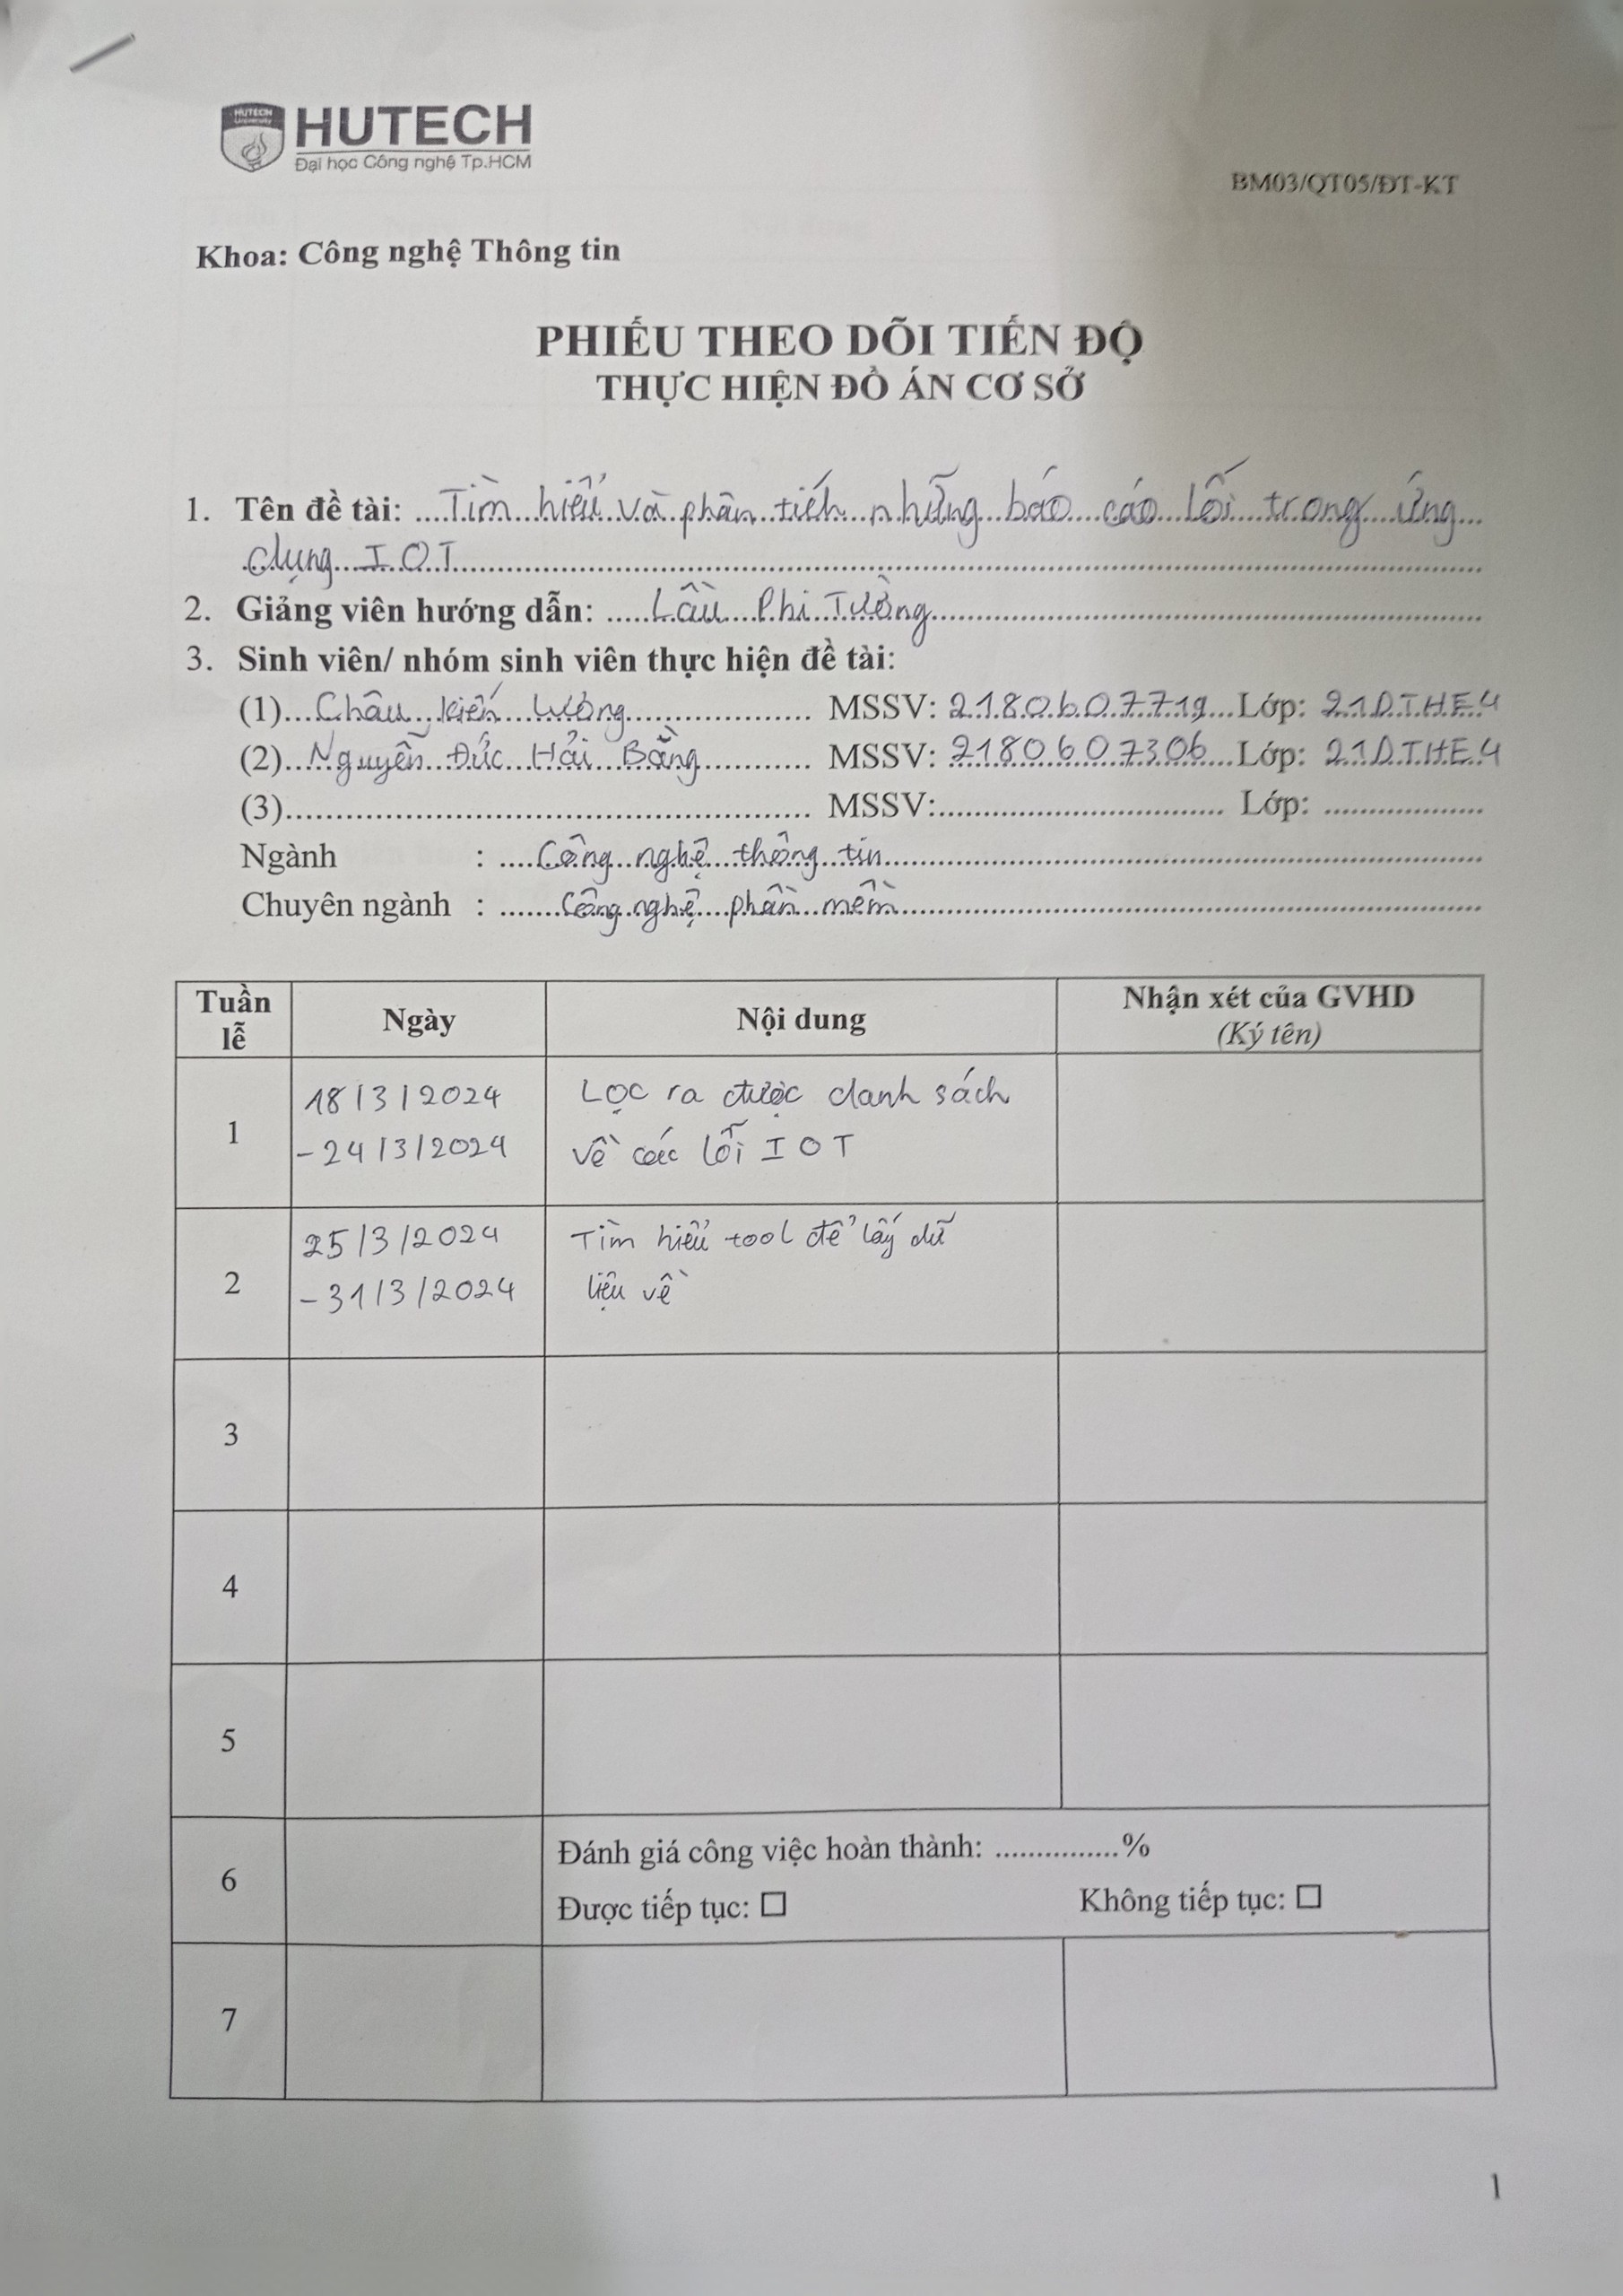 HUTECH
University
HUTECH
Đại học Công nghệ Tp.HCM
BM03/QT05/ĐT-KT
Khoa: Công nghệ Thông tin
PHIẾU THEO DÕI TIẾN ĐỘ
THỰC HIỆN ĐỒ ÁN CƠ SỞ
1. Tên đề tài: Tìm hiểu và phân tích những báo cáo lỗi trong ứng
dụng IOT
2. Giảng viên hướng dẫn: Lâu Phi Tường
3. Sinh viên/ nhóm sinh viên thực hiện đề tài:
(1) Châu kiến Lương MSSV: 2180607719 Lớp: 21DTHE4
(2) Nguyễn Đức Hải Bằng MSSV: 2180607306 Lớp: 21DTHE4
(3) MSSV: Lớp:
Ngành : Công nghệ thông tin
Chuyên ngành : Công nghệ phần mềm
Tuần lễ Ngày Nội dung Nhận xét của GVHD
(Ký tên)
1 18/3/2024 Lọc ra được danh sách
-24/3/2024 về các lỗi IOT
2 25/3/2024 Tìm hiểu tool để lấy dữ
-31/3/2024 liệu về
3
4
5
6 Đánh giá công việc hoàn thành: ...............%
Được tiếp tục: ☐ Không tiếp tục: ☐
7
1